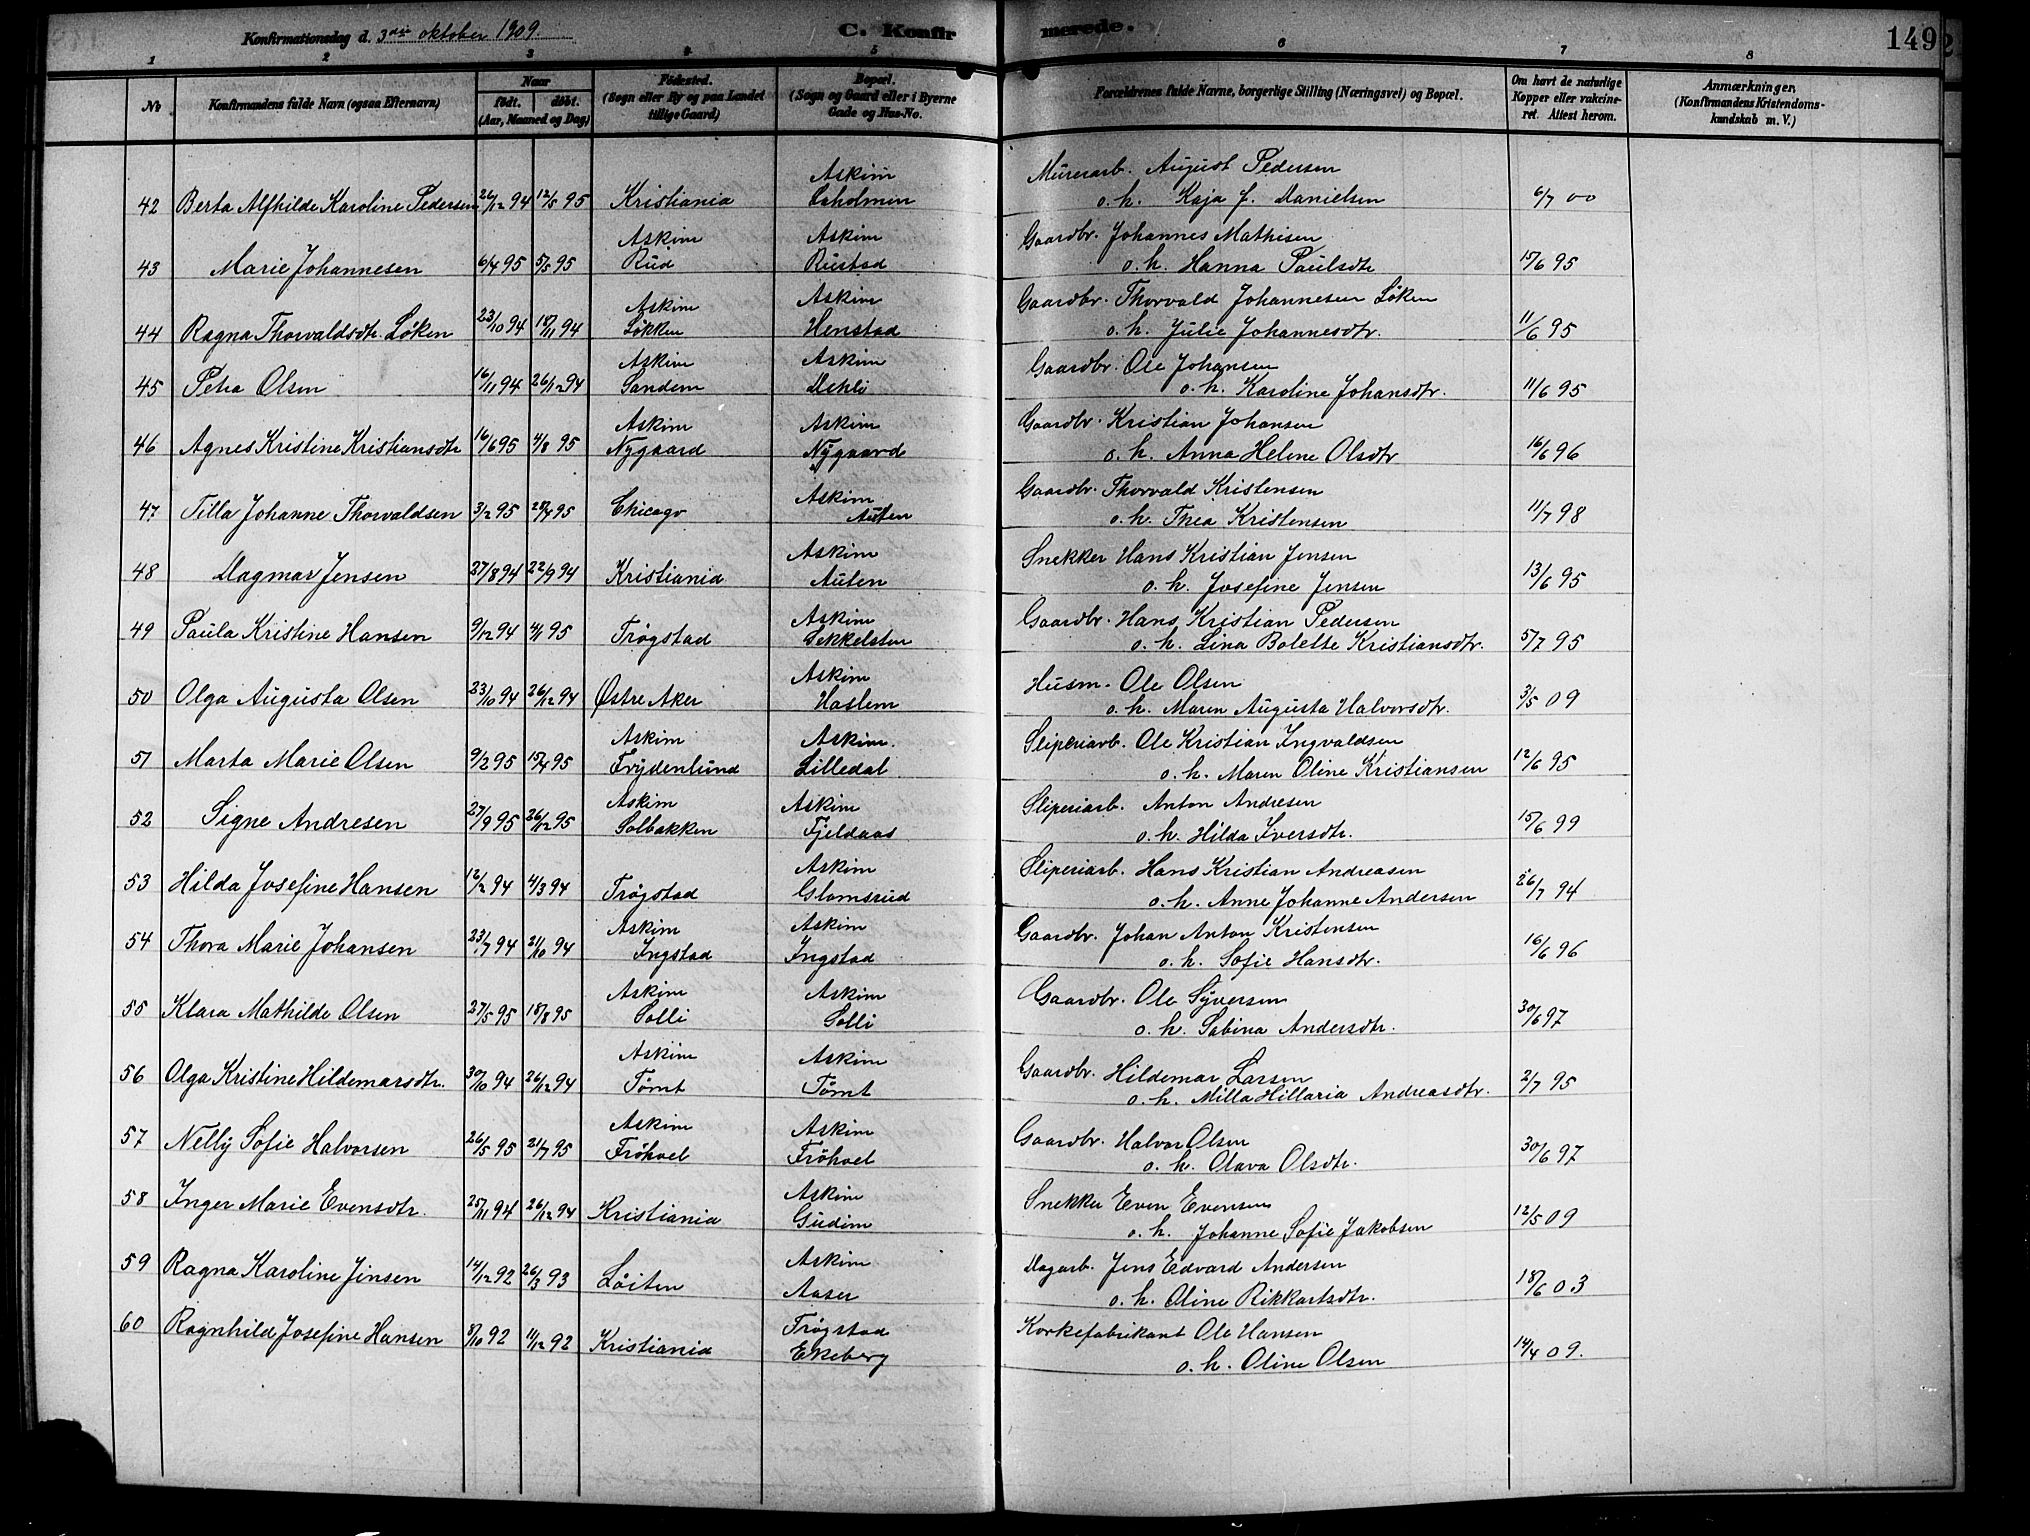 Konfirmationsdag d. 3die oktober 1909. C. Konfirmerede. 149
1 2 3 4 5 6 7 8
No Konfirmandens fulde Navn (ogsaa Efternavn) Naar født. døbt. (Aar, Maaned og Dag) Fødested. (Sogn eller By og paa Landet tillige Gaard) Bopæl. (Sogn og Gaard eller i Byerne Gade og Hus-No. Forældrenes fulde Navne, borgerlige Stilling (Næringsvei) og Bopæl. Om havt de naturlige Kopper eller vakcineret. Attest herom. Anmærkninger, (Konfirmandens Kristendomskundskab m. V.)
Askim Murerarb. August Pedersen
42 Berta Alfhilde Karoline Pedersen 26/12 94 12/5 95 Kristiania o. h. Kaja f. Danielsen 6/7 00
Askim Askim Gaardbr. Johannes Mathisen
43 Marie Johannesen 6/4 95 5/5 95 Rud Rustad o. h. Hanna Paulsdtr 15/6 95
Askim Askim Gaardbr. Thorvald Johannesen Löken
44 Ragna Thorvaldsdtr. Löken 23/10 94 18/11 94 Løkken Henstad o. h. Julie Johannesdtr. 11/6 95
Askim Askim Gaardbr. Ole Johansen
45 Petra Olsen 16/11 94 26/12 94 Sandem Dehli o. h. Karoline Johansdtr. 11/6 95
Askim Askim Gaardbr. Kristian Johansen
46 Agnes Kristine Kristiansdtr 16/6 95 4/8 95 Nygaard Nygaard o. h. Anna Helene Olsdtr 16/6 96
Askim Gaardbr. Thorvald Kristensen
47. Tilla Johanne Thorvaldsen 3/2 95 28/4 95 Chicago Auten o. h. Thea Kristensen 11/7 98
Askim Snekker Hans Kristian Jensen
48 Dagmar Jensen 27/8 94 22/9 94 Kristiania Auten o. h. Josefine Jensen 13/6 95
Askim Gaardbr. Hans Kristian Pedersen
49 Paula Kristine Hansen 9/12 94 4/1 95 Trøgstad Sekkelsten o. h. Lina Bolette Kristiansdtr. 5/7 95
Askim Husm. Ole Olsen
50 Olga Augusta Olsen 23/10 94 26/12 94 Østre Aker Haslem o. h. Maren Augusta Halvorsdtr. 3/5 09
Askim Askim. Sliperiarb. Ole Kristian Ingvaldsen
51 Marta Marie Olsen 9/2 95 15/4 95 Frydenlund Lilledal o. h. Maren Oline Kristiansen 12/6 95
Askim Askim Sliperiarb. Anton Andresen
52 Signe Andresen 27/9 95 26/12 95 Solbakken Fjeldaas o. h. Hilda Iversdtr. 15/6 99
Askim Sliperiarb. Hans Kristian Andreasen
53 Hilda Josefine Hansen 12/2 94 4/3 94 Trøgstad Glomsrud o. h. Anne Johanne Andersen 26/7 94
Askim Askim Gaardbr. Johan Anton Kristensen
54 Thora Marie Johansen 23/7 94 21/10 94 Ingstad Ingstad o. h. Sofie Hansdtr. 16/6 96
Askim Askim Gaardbr. Ole Syversen
55 Klara Mathilde Olsen 27/5 95 18/8 95 Solli Solli o. h. Sabina Andersdtr. 30/6 97
Askim Askim Gaardbr. Hildemar Larsen
56 Olga Kristine Hildemarsdtr. 30/10 94 26/12 94 Tömt Tömt o. h. Milla Hillaria Andreasdtr. 2/7 95
Askim Askim Gaardbr. Halvor Olsen
57 Nelly Sofie Halvorsen 26/5 95 21/7 95 Fröhoel Fröhoel o. h. Olava Olsdtr. 30/6 97
Askim Snekker Even Evensen
58 Inger Marie Evensdtr. 25/11 94 26/12 94 Kristiania Gudim o. h. Johanne Sofie Jakobsen 12/5 09
Askim Dagarb. Jens Edvard Andersen
59 Ragna Karoline Jensen 14/12 92 26/3 93 Löiten Aaser o. h. Oline Rikkartsdtr. 18/6 03
Trøgstad Korkefabrikant Ole Hansen
60 Ragnhild Josefine Hansen 8/10 92 11/12 92 Kristiania Ekeberg o. h. Oline Olsen 14/4 09.